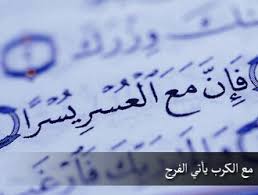 وِزْرَكَ
فَإِنَّ مَعَ ٱلْعُسْرِ يُسْرًا
مع الكرب يأتي الفرج